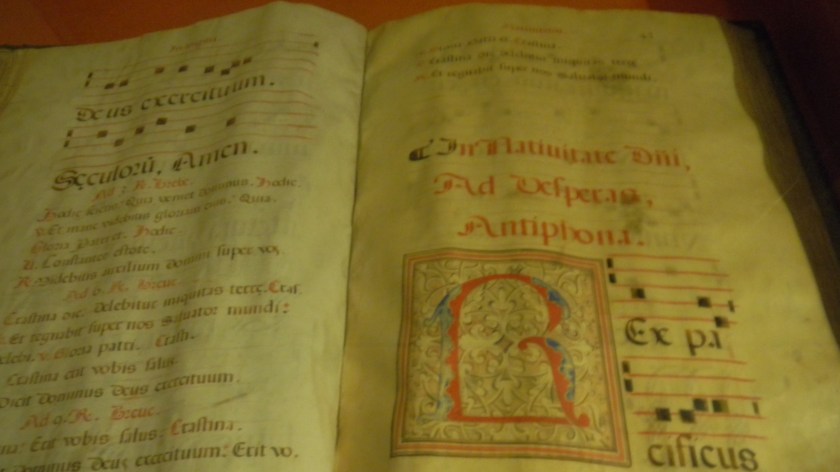 Deus exercituum.
Sęculorū, Amen.
Ad 3. R. breue.
Hodie scietis. Quia veniet dominus. Hodie.
V. Et mane videbitis gloriam eius. Quia.
Gloria patri et. Hodie.
V. Constantes estote.
R. Videbitis auxilium Domini super vos.
Ad 6. R. breue.
Crastina die. Delebitur iniquitas terrę. Cras.
Et regnabit super nos saluator mundi:
Delebi. v. Gloria patri. Crasti.
Crastina erit vobis salus.
Dicit Dominus Deus exercituum.
Ad 9. R. breue.
Erit vobis salus. Crastina.
Dominus Deus exercituum: Erit vo.
Crastina die delebitur iniquitas terrę.
Et regnabit super nos saluator mundi.
In Natiuitate Dñi,
Ad Vesperas,
Antiphona.
REx pa
cificus